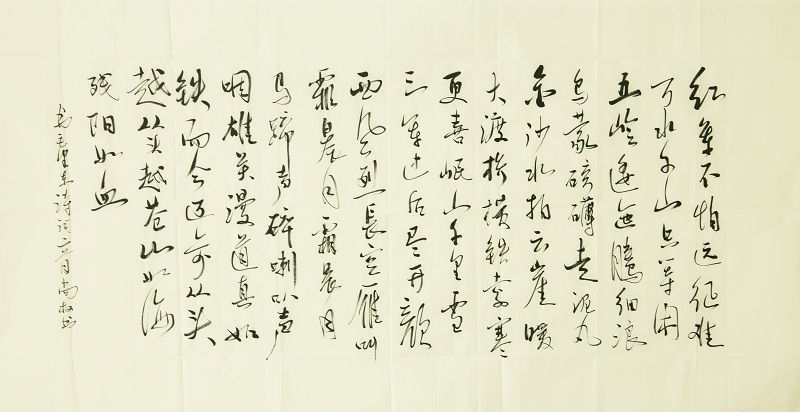 红军不怕远征难
万水千山只等闲
五岭逶迤腾细浪
乌蒙磅礴走泥丸
金沙水拍云崖暖
大渡桥横铁索寒
更喜岷山千里雪
三军过后尽开颜
西风烈长空雁叫
霜晨月霜晨月
马蹄声碎喇叭声
咽雄关漫道真如
铁而今迈步从头
越从头越苍山如海
残阳如血
毛泽东诗词二首